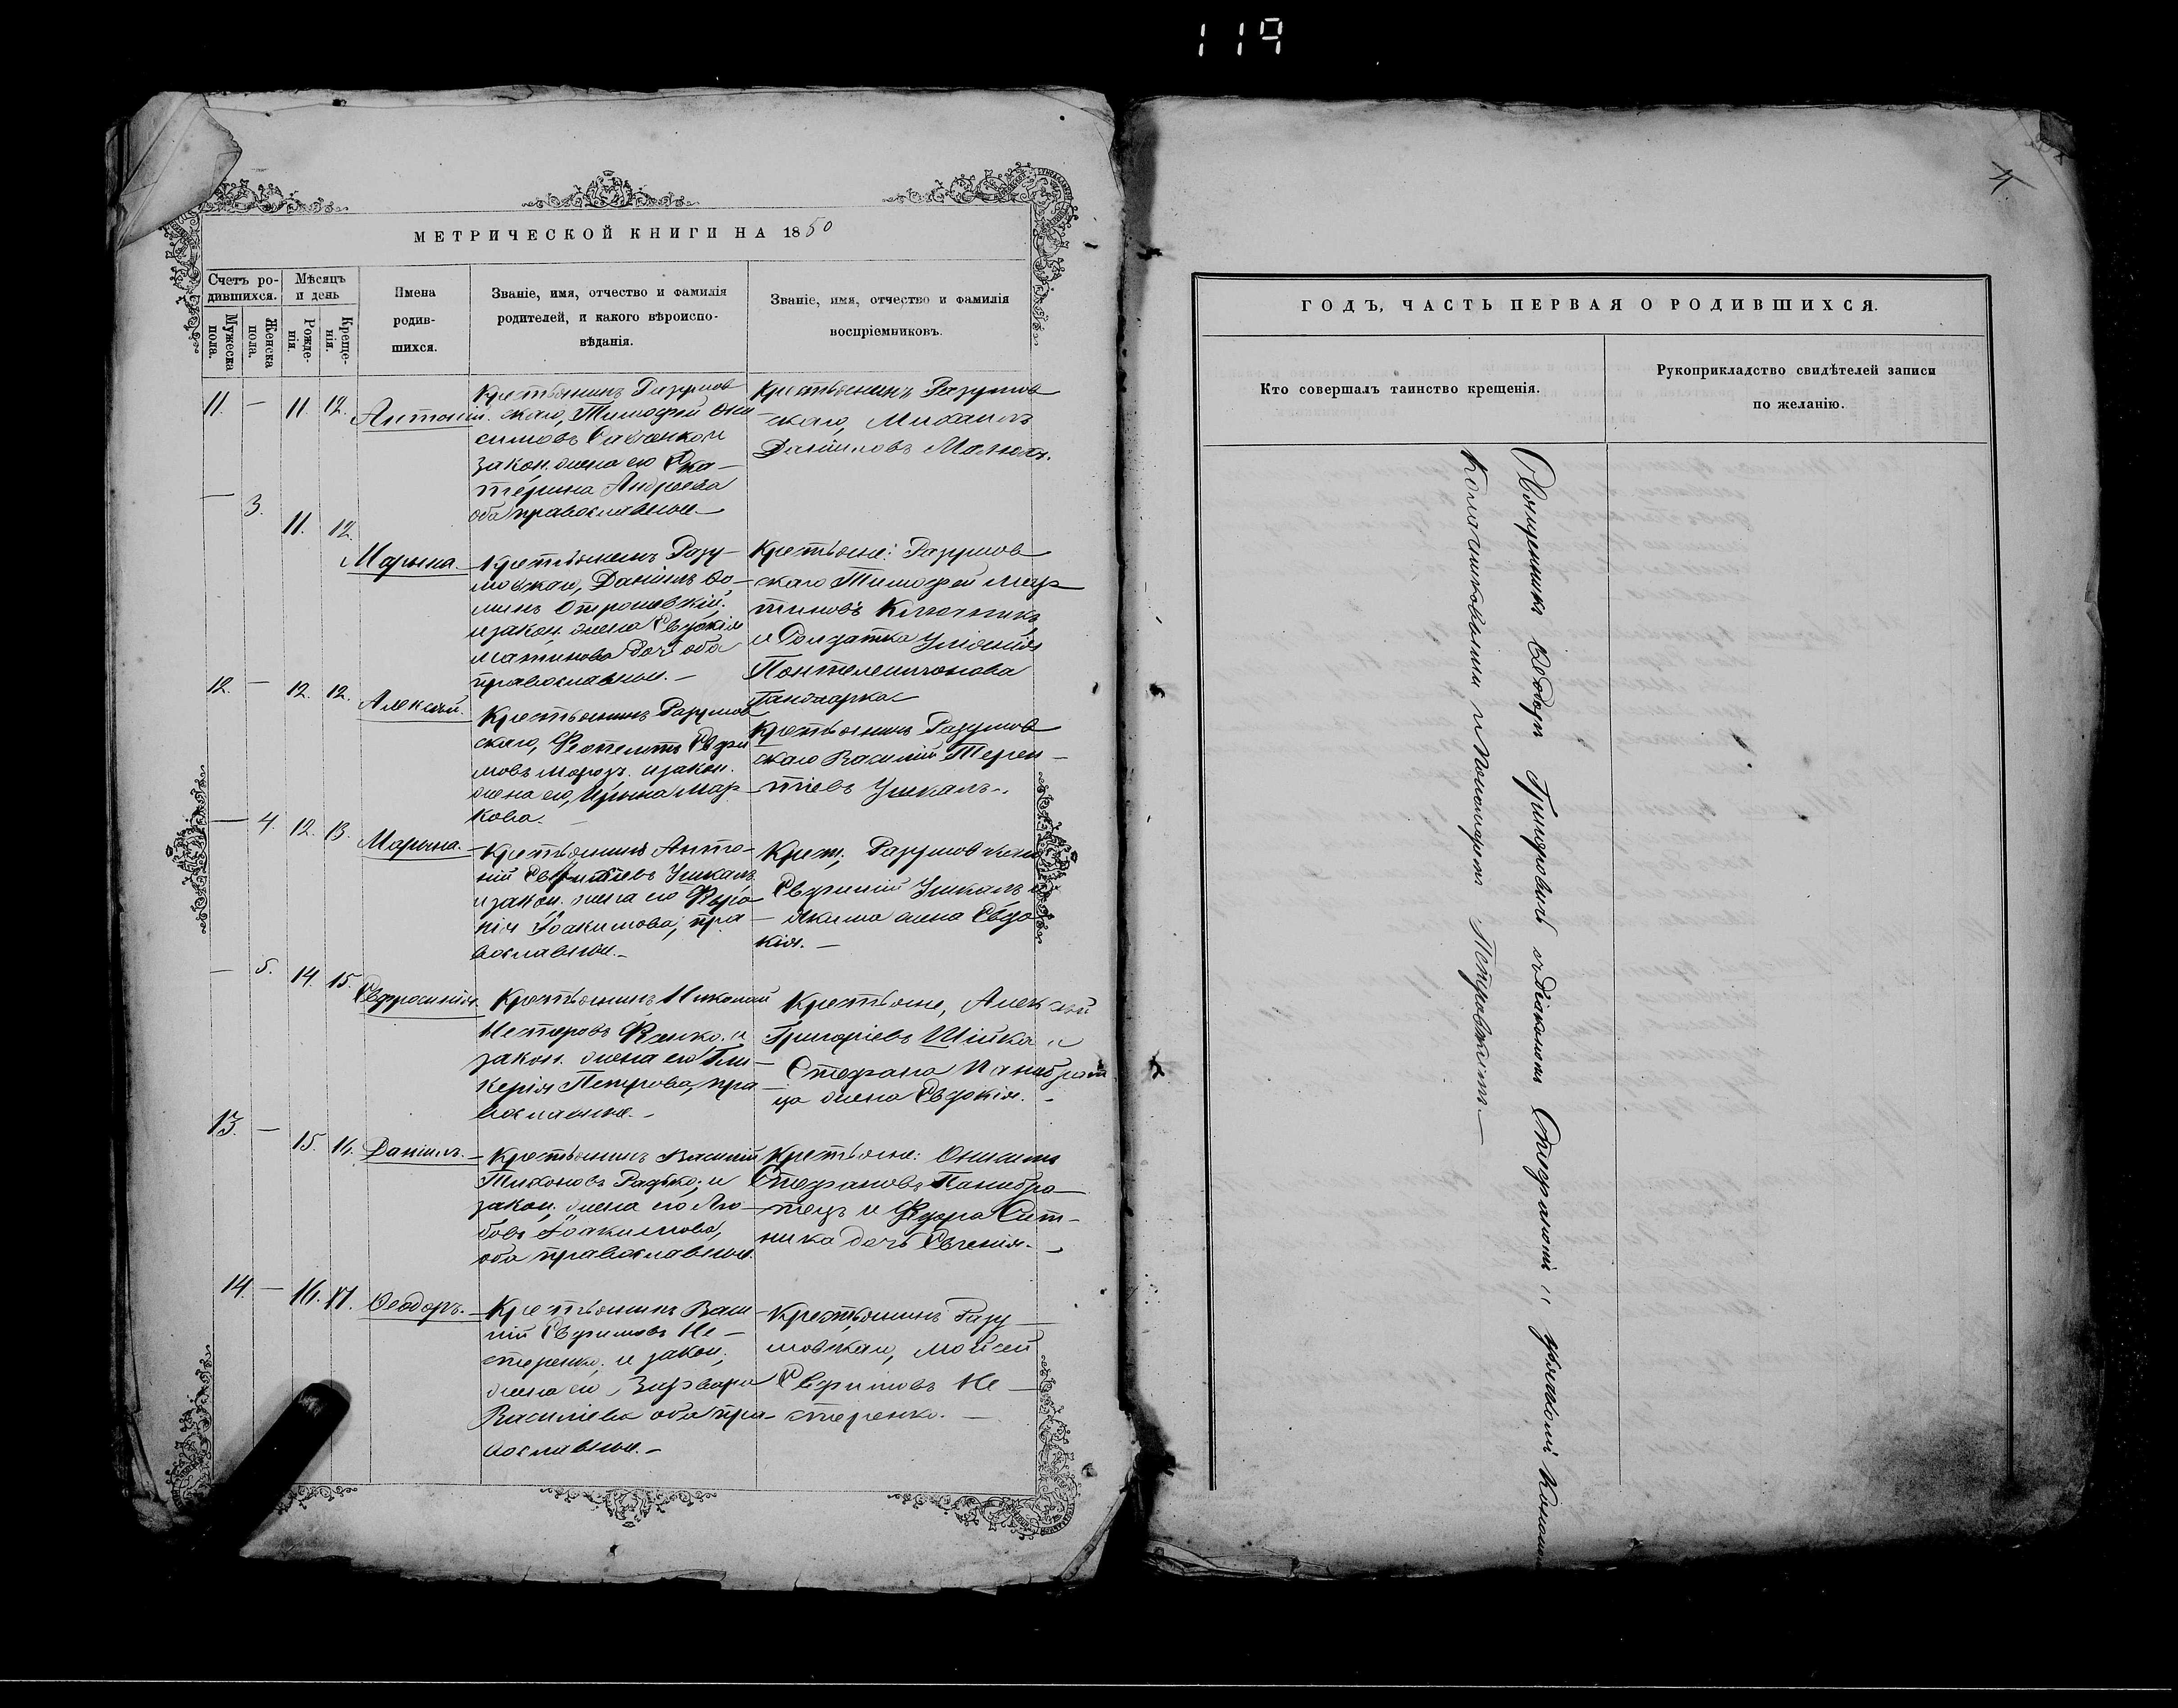 119
МЕТРИЧЕСКОЙ КНИГИ НА 1850
Счетъ ро-
дившихся.
Мѣсяцъ
и день
Мужеска
пола.
Женска
пола.
Рожде-
нія.
Креще-
нія.
Имена
родив-
шихся.
Званіе, имя, отчество и фамилія
родителей, и какого вѣроиспо-
вѣданія.
Званіе, имя, отчество и фамилія
воспріемниковъ.
11. — 11. 12. Антоній.
Крестьянинъ Разумов
скаго, Тимофей Они
симовъ
закон. жена его Ека-
терина Андреева
оба православные.
Крестьянинъ Разумов
скаго, Михаилъ
Даніиловъ
— 3. 11. 12. Марына.
Крестьянинъ Разу-
мовскаго, Даніилъ Ѳо-
минъ
и закон. жена Евдокія
оба
православные.
Крестьяне: Разумов
скаго Тимофей Мар
тиновъ Ключникъ
и
Пантелеимонова
Ганджарка
12. — 12. 12. Алексѣй.
Крестьянинъ Разумов
скаго,
мовъ Морозъ. и закон.
жена его, Ирына Мар-
кова.
Крестьянинъ Разумов
скаго Василій Терен-
тіевъ Ушкалъ.
— 4. 12. 13. Марына.
Крестьянинъ Анто-
ній Ушкалъ
и закон. жена его
Іоакимова, пра
вославные.
Крест. Разумовскаго
Евфимій Ушкалъ и
Якима жена Евдо
кія.
— 5. 14. 15. Евфросинія.
Крестьянинъ Николай
Нестеровъ
закон. жена его Гли-
керія Петрова, пра-
вославные.
Крестьяне, Алексѣй
Григоріевъ Шійка и
Стефана Панибрат
ца жена Евдокія.
13. — 15. 16. Даніилъ.
Крестьянинъ Василій
Тихоновъ Радько, и
закон. жена его Лю-
бовь Іоакимова,
оба православные.
Крестьяне: Онисимъ
Стефановъ Панибра-
тецъ и Ѳедора Сит-
ника дочь Евгенія.
14. — 16. 17. Ѳеодоръ.
Крестьянинъ Васи-
лій Евфимовъ Не-
стеренко, и закон.
жена его, Варвара
Василіева оба пра-
вославные.
Крестьянинъ Разу
мовскаго, Мойсей
Евфимовъ Не-
стеренко.
4
ГОДЪ, ЧАСТЬ ПЕРВАЯ О РОДИВШИХСЯ.
Кто совершалъ таинство крещенія.
Рукоприкладство свидѣтелей записи
по желанію.
Священникъ Ѳеодоръ Григоровичъ съ діакономъ Стефаномъ
и Пономаремъ Петровскимъ.